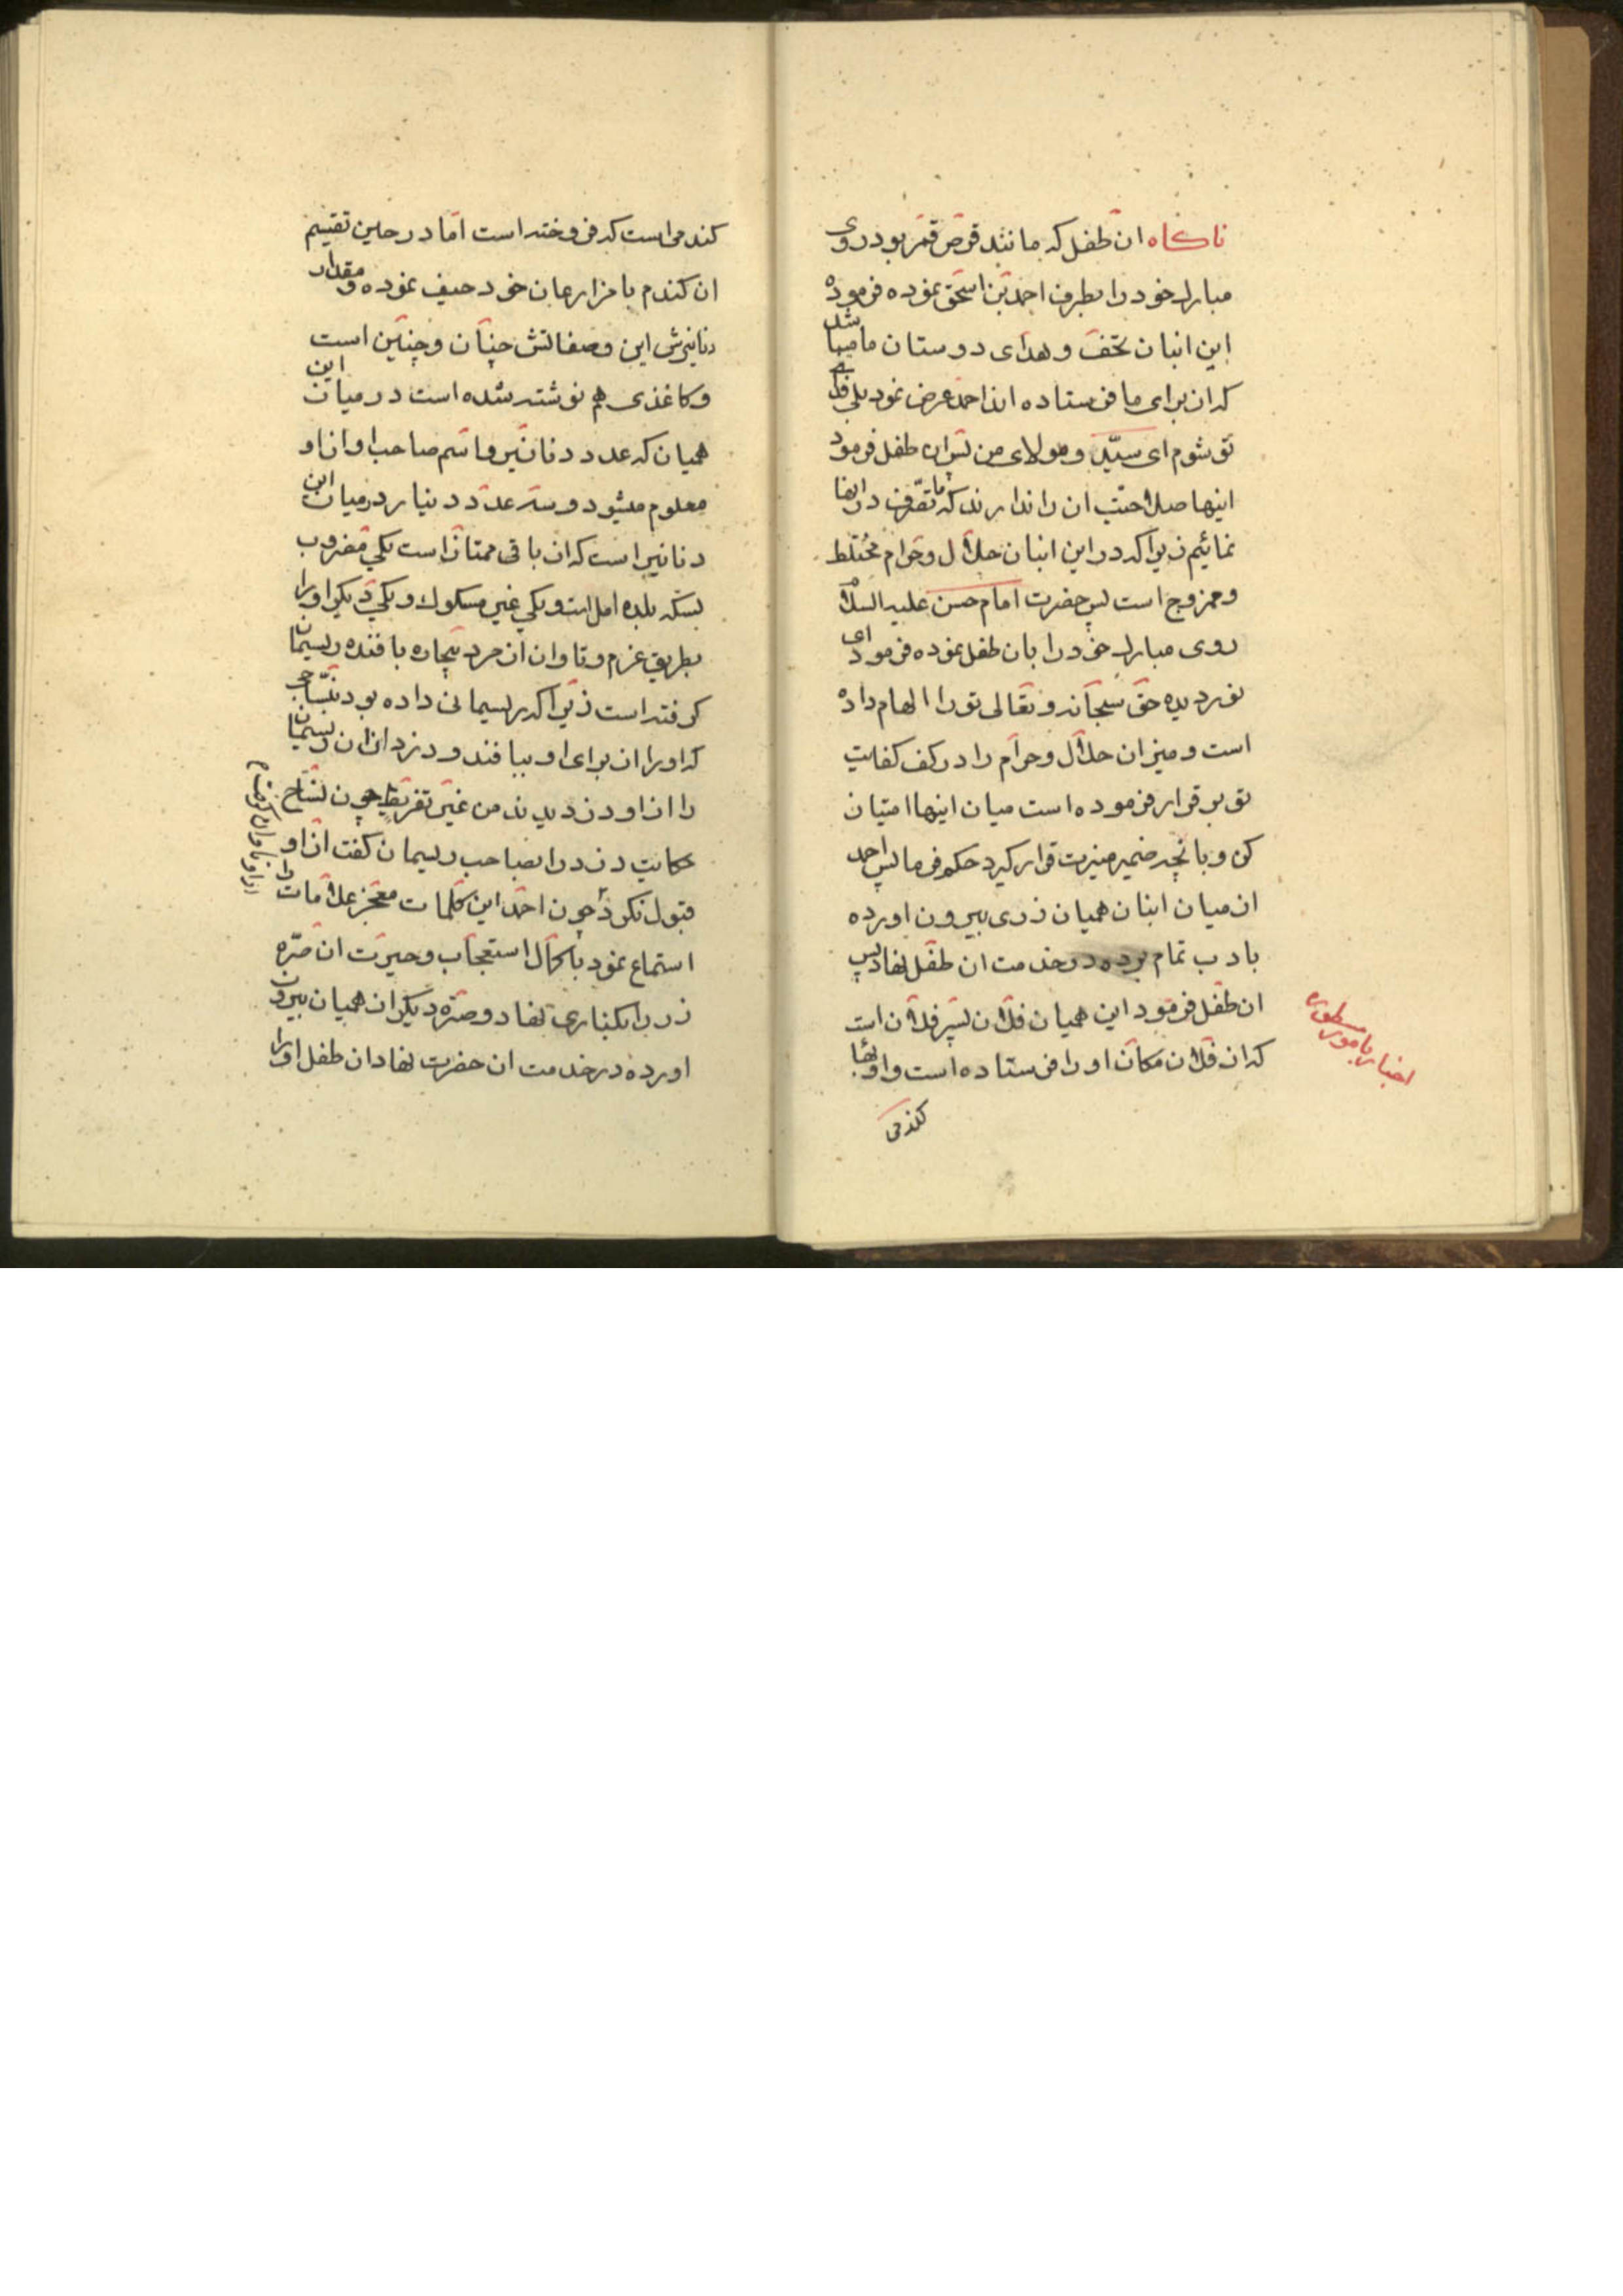 ناکاه ان طفل که مانند قرص قمر بود روی
مبارک خود را بطرف احمد بن اسحق نموده فرموده
این انبان تحف و هدای دوستان ما میباشد
که از برای ما فرستاده اند احمد عرض نمود بلی فدای
تو شوم ای سیّد و مولای من پس ان طفل فرمود
اینها صلاحیّت ان را ندارند که ما تصّرف در انها
نمائیم زیرا که در این انبان حلال و حرام مخُتلط
و ممزوج است پس حضرت امام حسن علیه السلام
روی مبارک خود را بان طفل نموده فرمود ای
نور دیده حق سبحانه و تعالی تو را الهام داده
است و میزان حلال و حرام را در کف کفایت
تو برقرار فرموده است میان اینها امتیاز
کن و بانچه ضمیر منیرت قرار کیرد حکم فرما پس احمد
از میان انبان همیان زری بیرون اورده
بادب تمام برده در خدمت ان طفل نهاد پس
ان طفل فرمود این همیان فلان پسر فلان است
که از فلان مکان او را فرستاده است و او بهای
اخبار بامور مسطوره
کندمی
کندمی است که فروخته است امّا در حین تقسیم
ان کندم با مزارعان خود حیف نموده و مقدار
دنانیرش این و صفاتش چنان و چنین است
و کاغذی هم نوشته شده است در میان این
همیان که عدد دنانیر و اسم صاحب او از او
معلوم میشود و سه عدد دینار در میان این
دنانیر است که از باقی ممتاز است یکی مضروب
بسکه بلده امل است و یکی غیر مسکوک و یکی دیکر او را
بطریق غرم و تاوان از مرد بیچاره بافنده ریسمان
کرفته است زیرا که ریسمانی داده بود بنسّاجی
که او را از برای او ببافند و دزد ازان ریسمان
را از او دزدیدند من غیر تفریط چون نسّاج
حکایت دزد را بصاحب ریسمان کفت از او
قبول نکرد چون احمد این کلمات معجز علامات را
استماع نمود با کمال استعجاب و حیرت ان صرّه
زر را بکناری نهاد و صرّه دیکر از همیان بیرون
اورده در خدمت ان حضرت نهاد ان طفل او را